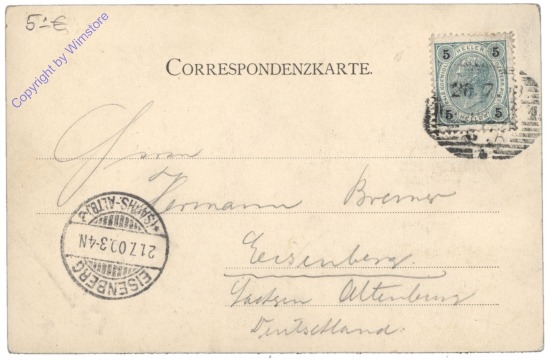 5.-€
Copyright by Wimstore
CORRESPONDENZKARTE.
5 HELLER 5
20 7
5 HELLER 5
Herrn
Hermann Bremer
Eisenberg.
Sachsen Altenburg
Deutschland.
EISENBERG
21.7.00.3-4N
*(SACHS-ALTB.)*